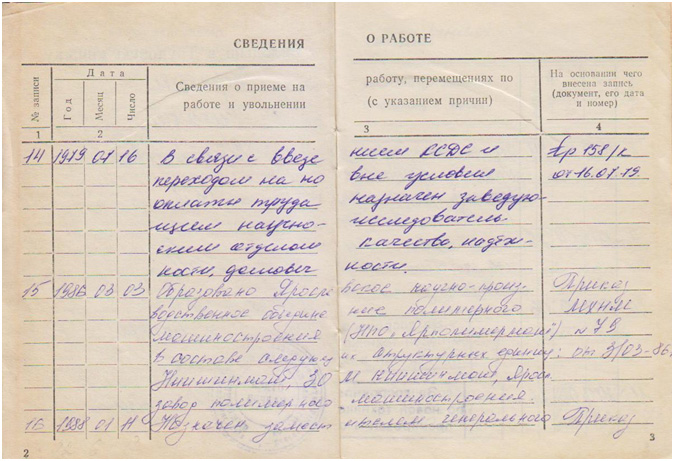 СВЕДЕНИЯ О РАБОТЕ
№ записи
Дата
Год
Месяц
Число
Сведения о приеме на работу, перемещениях по
работе и увольнении (с указанием причин)
На основании чего
внесена запись
(документ, его дата
и номер)
1 2 3 4
14 1979 07 16 В связи с введением КСДС и Пр 158/к
переходом на новые условия от 16.07.79
оплаты труда назначен заведую-
щим научно-исследователь-
ским отделом качества, надеж-
ности, долговечности.
15 1986 03 03 Образовано Ярославское научно-произ- Приказ
водственное объединение полимерного МХНМ
машиностроения (НПО "Ярполимермаш") № 79
в составе следующих структурных единиц: от 3/03-86.
завод полимерного машиностроения
16 1988 01 Назначен заместителем генерального Приказ
2
3